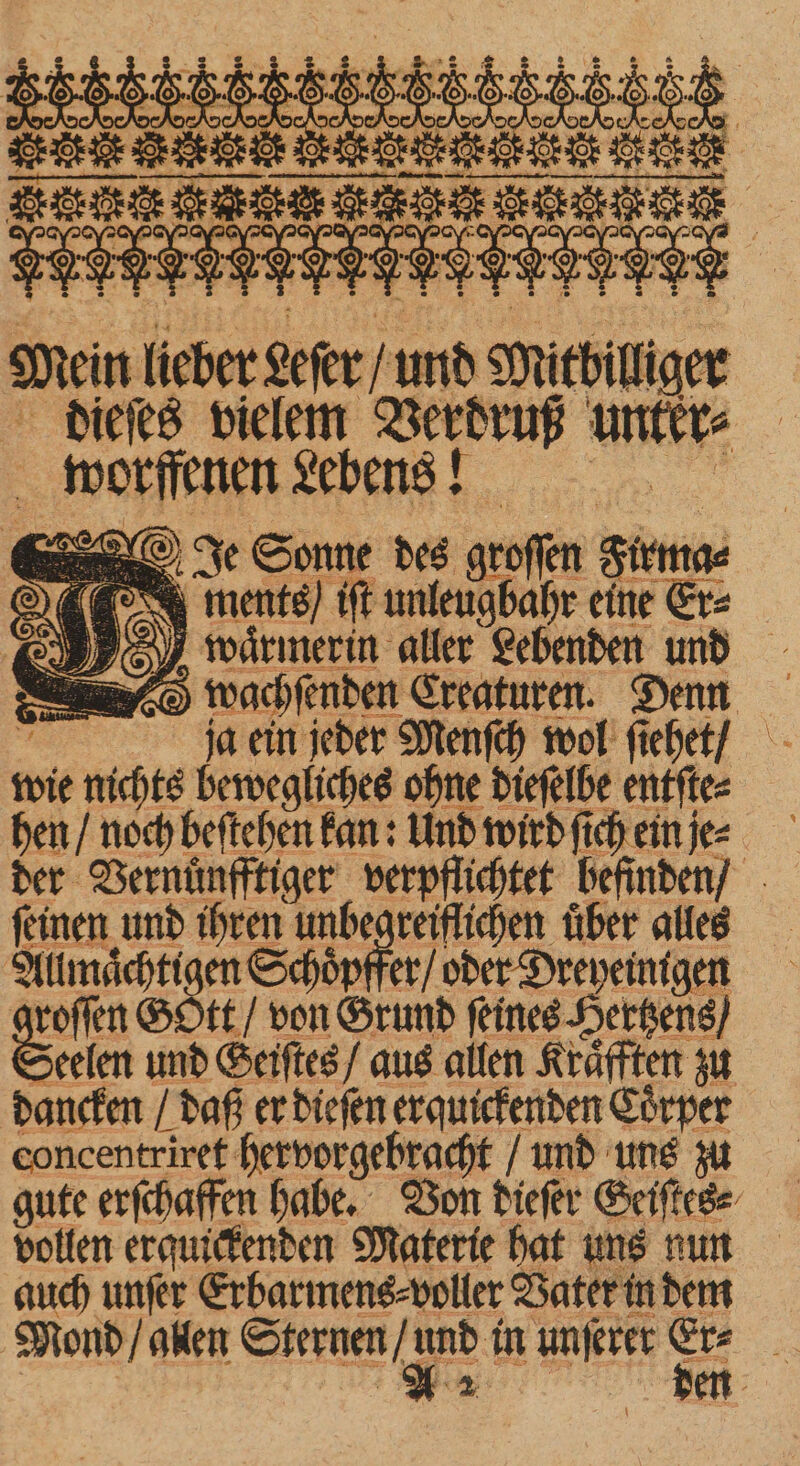 Mein lieber Leſer / und Mitbilliger
dieſes vielem Verdruß unter⸗
worffenen Lebens!
DIe Sonne des groſſen Firma⸗
ments / iſt unleugbahr eine Er⸗
waͤrmerin aller Lebenden und
wachſenden Creaturen. Denn
ja ein jeder Menſch wol ſiehet /
wie nichts bewegliches ohne dieſelbe entſte⸗
hen / noch beſtehen kan: Und wird ſich ein je⸗
der Vernuͤnfftiger verpflichtet befinden /
ſeinen und ihren unbegreiflichen uͤber alles
Allmaͤchtigen Schoͤpffer / oder Dreyeinigen
groſſen GOtt / von Grund ſeines Hertzens /
Seelen und Geiſtes / aus allen Kraͤfften zu
dancken / daß er dieſen erquickenden Coͤrper
concentriret hervorgebracht / und uns zu
gute erſchaffen habe. Von dieſer Geiſtes⸗
vollen erquickenden Materie hat uns nun
auch unſer Erbarmens⸗voller Vater in dem
Mond / allen Sternen / und in unſerer Er⸗
A 2 den